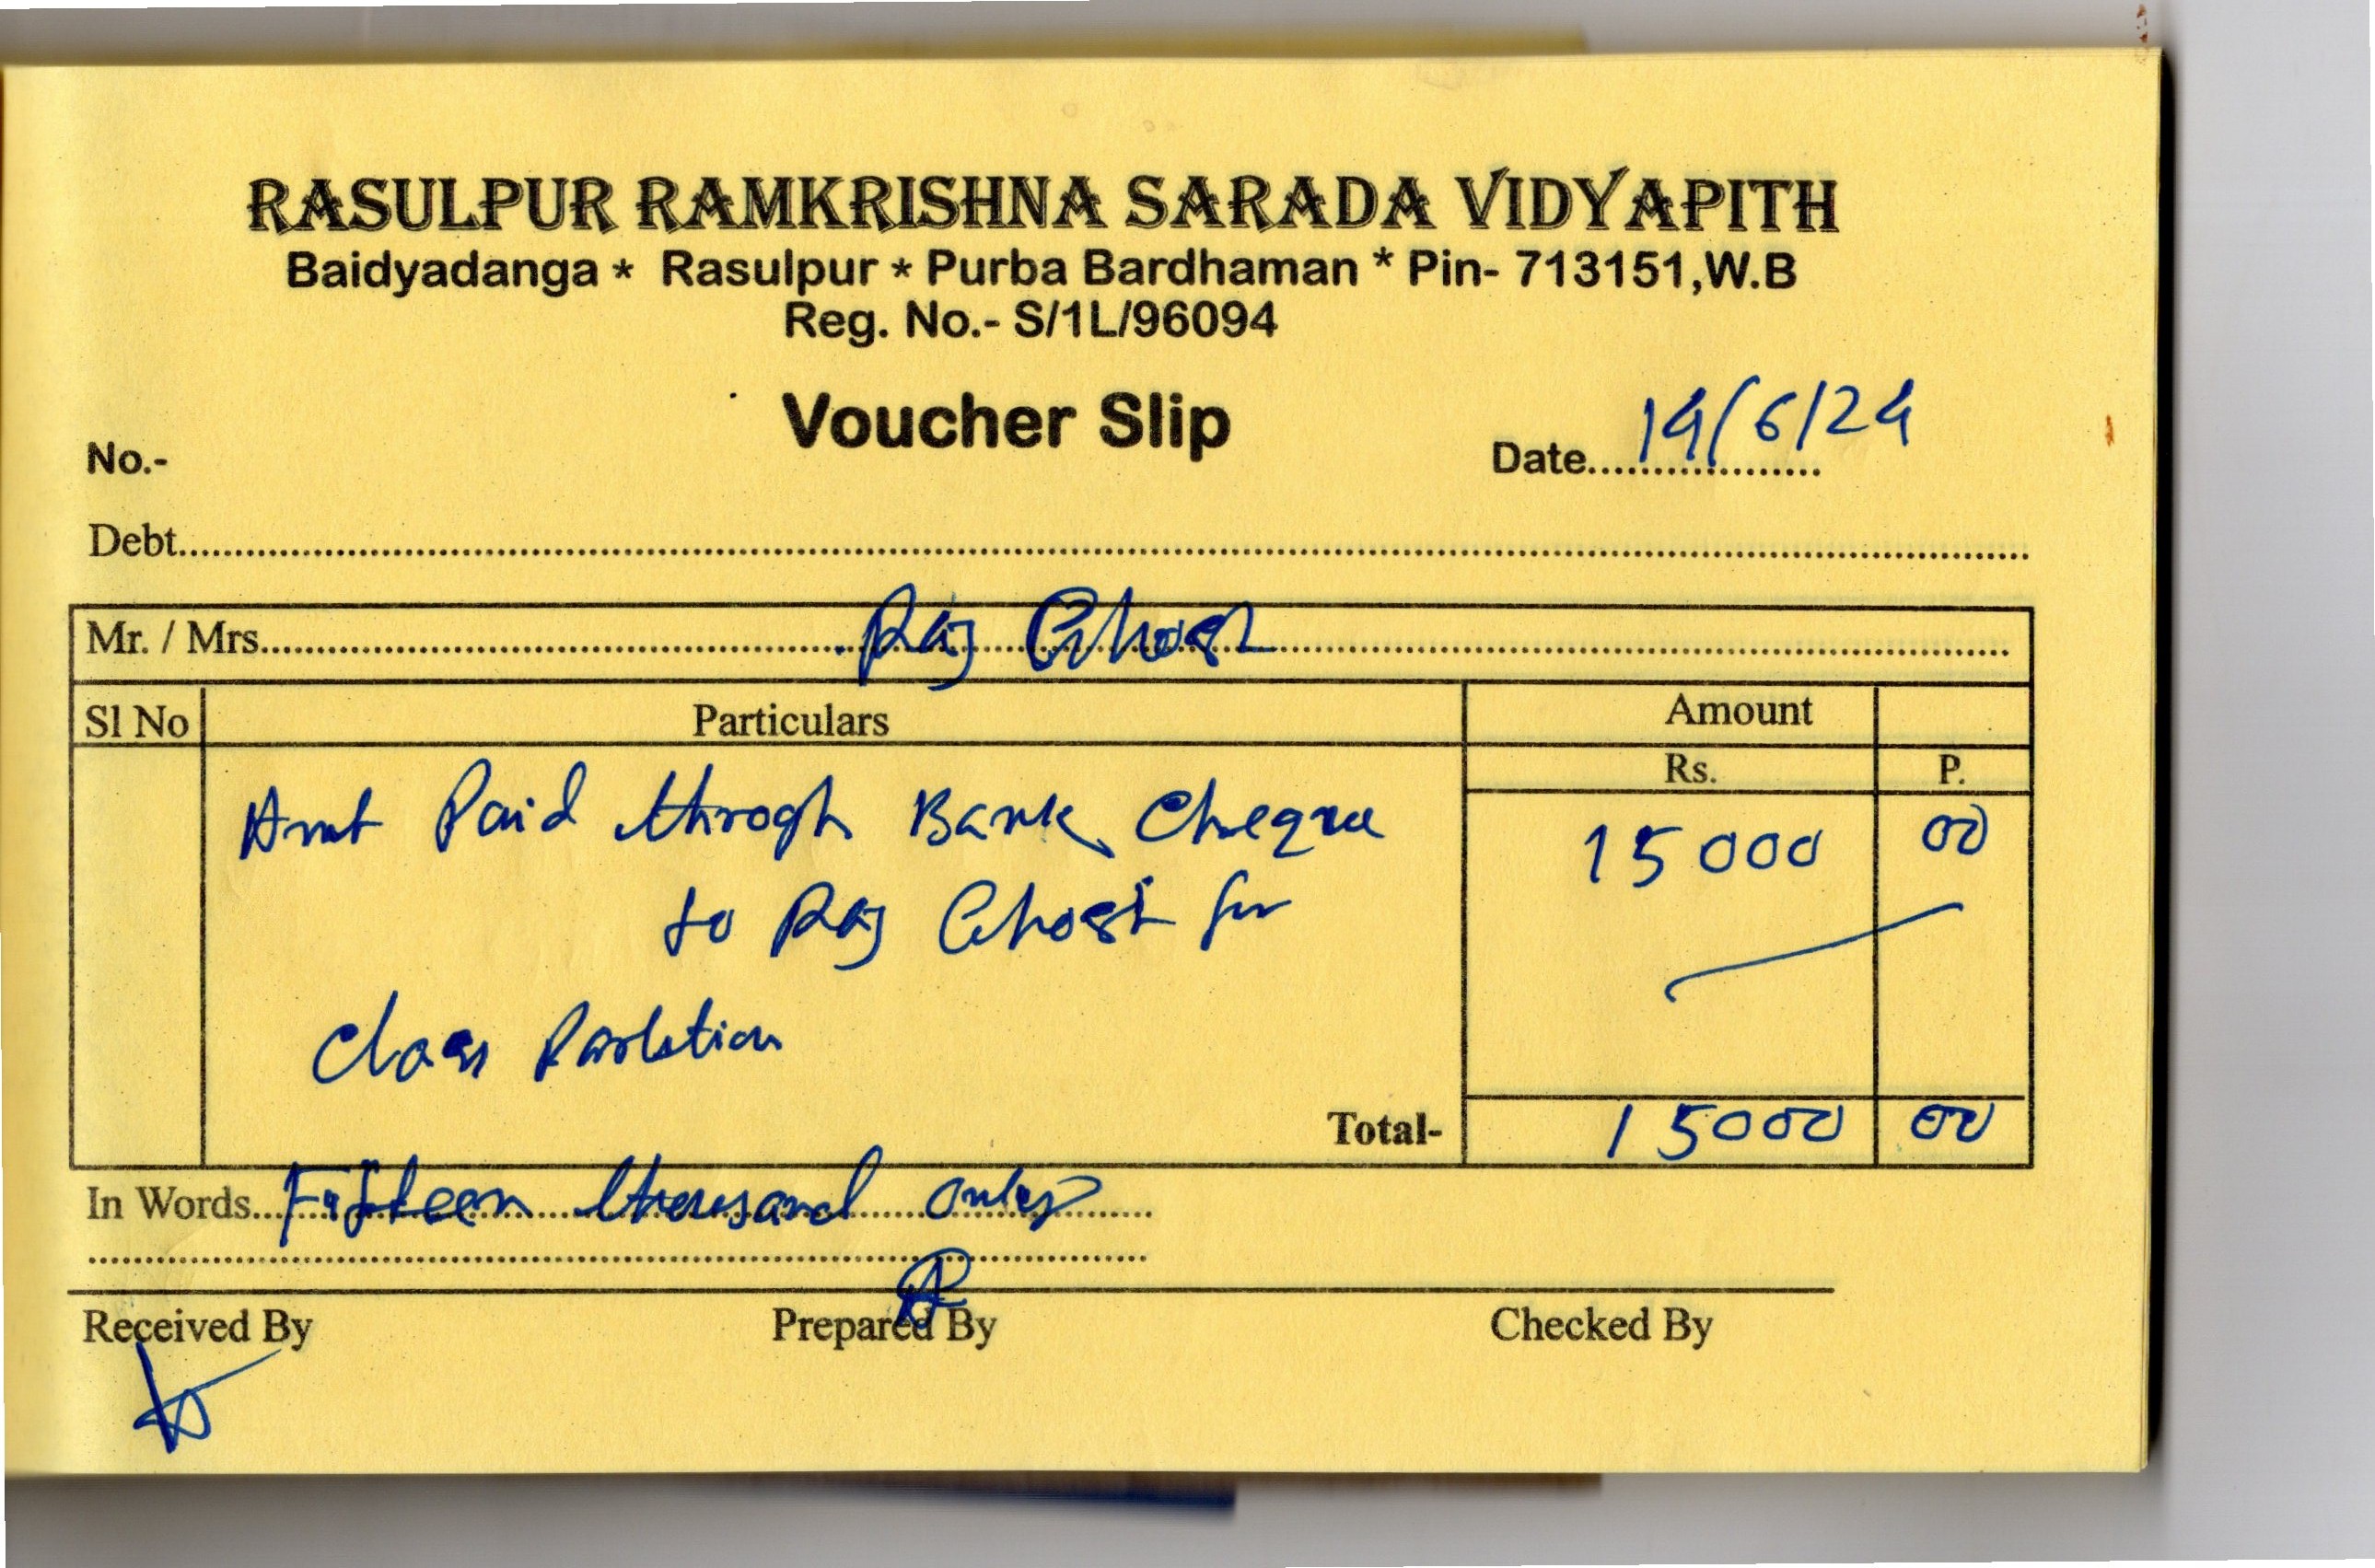 RASULPUR RAMKRISHNA SARADA VIDYAPITH
Baidyadanga * Rasulpur * Purba Bardhaman * Pin- 713151,W.B
Reg. No.- S/1L/96094
Voucher Slip
No.-
Date.................. 14/6/24
Debt
Mr. / Mrs. Raj Ghosh
Sl No Particulars Amount
Rs. P.
Amt Paid throgh Bank Cheque 15000 00
to Raj Ghosh for
Class
Total- 15000 00
In Words Fifteen thousand only
Received By Prepared By Checked By